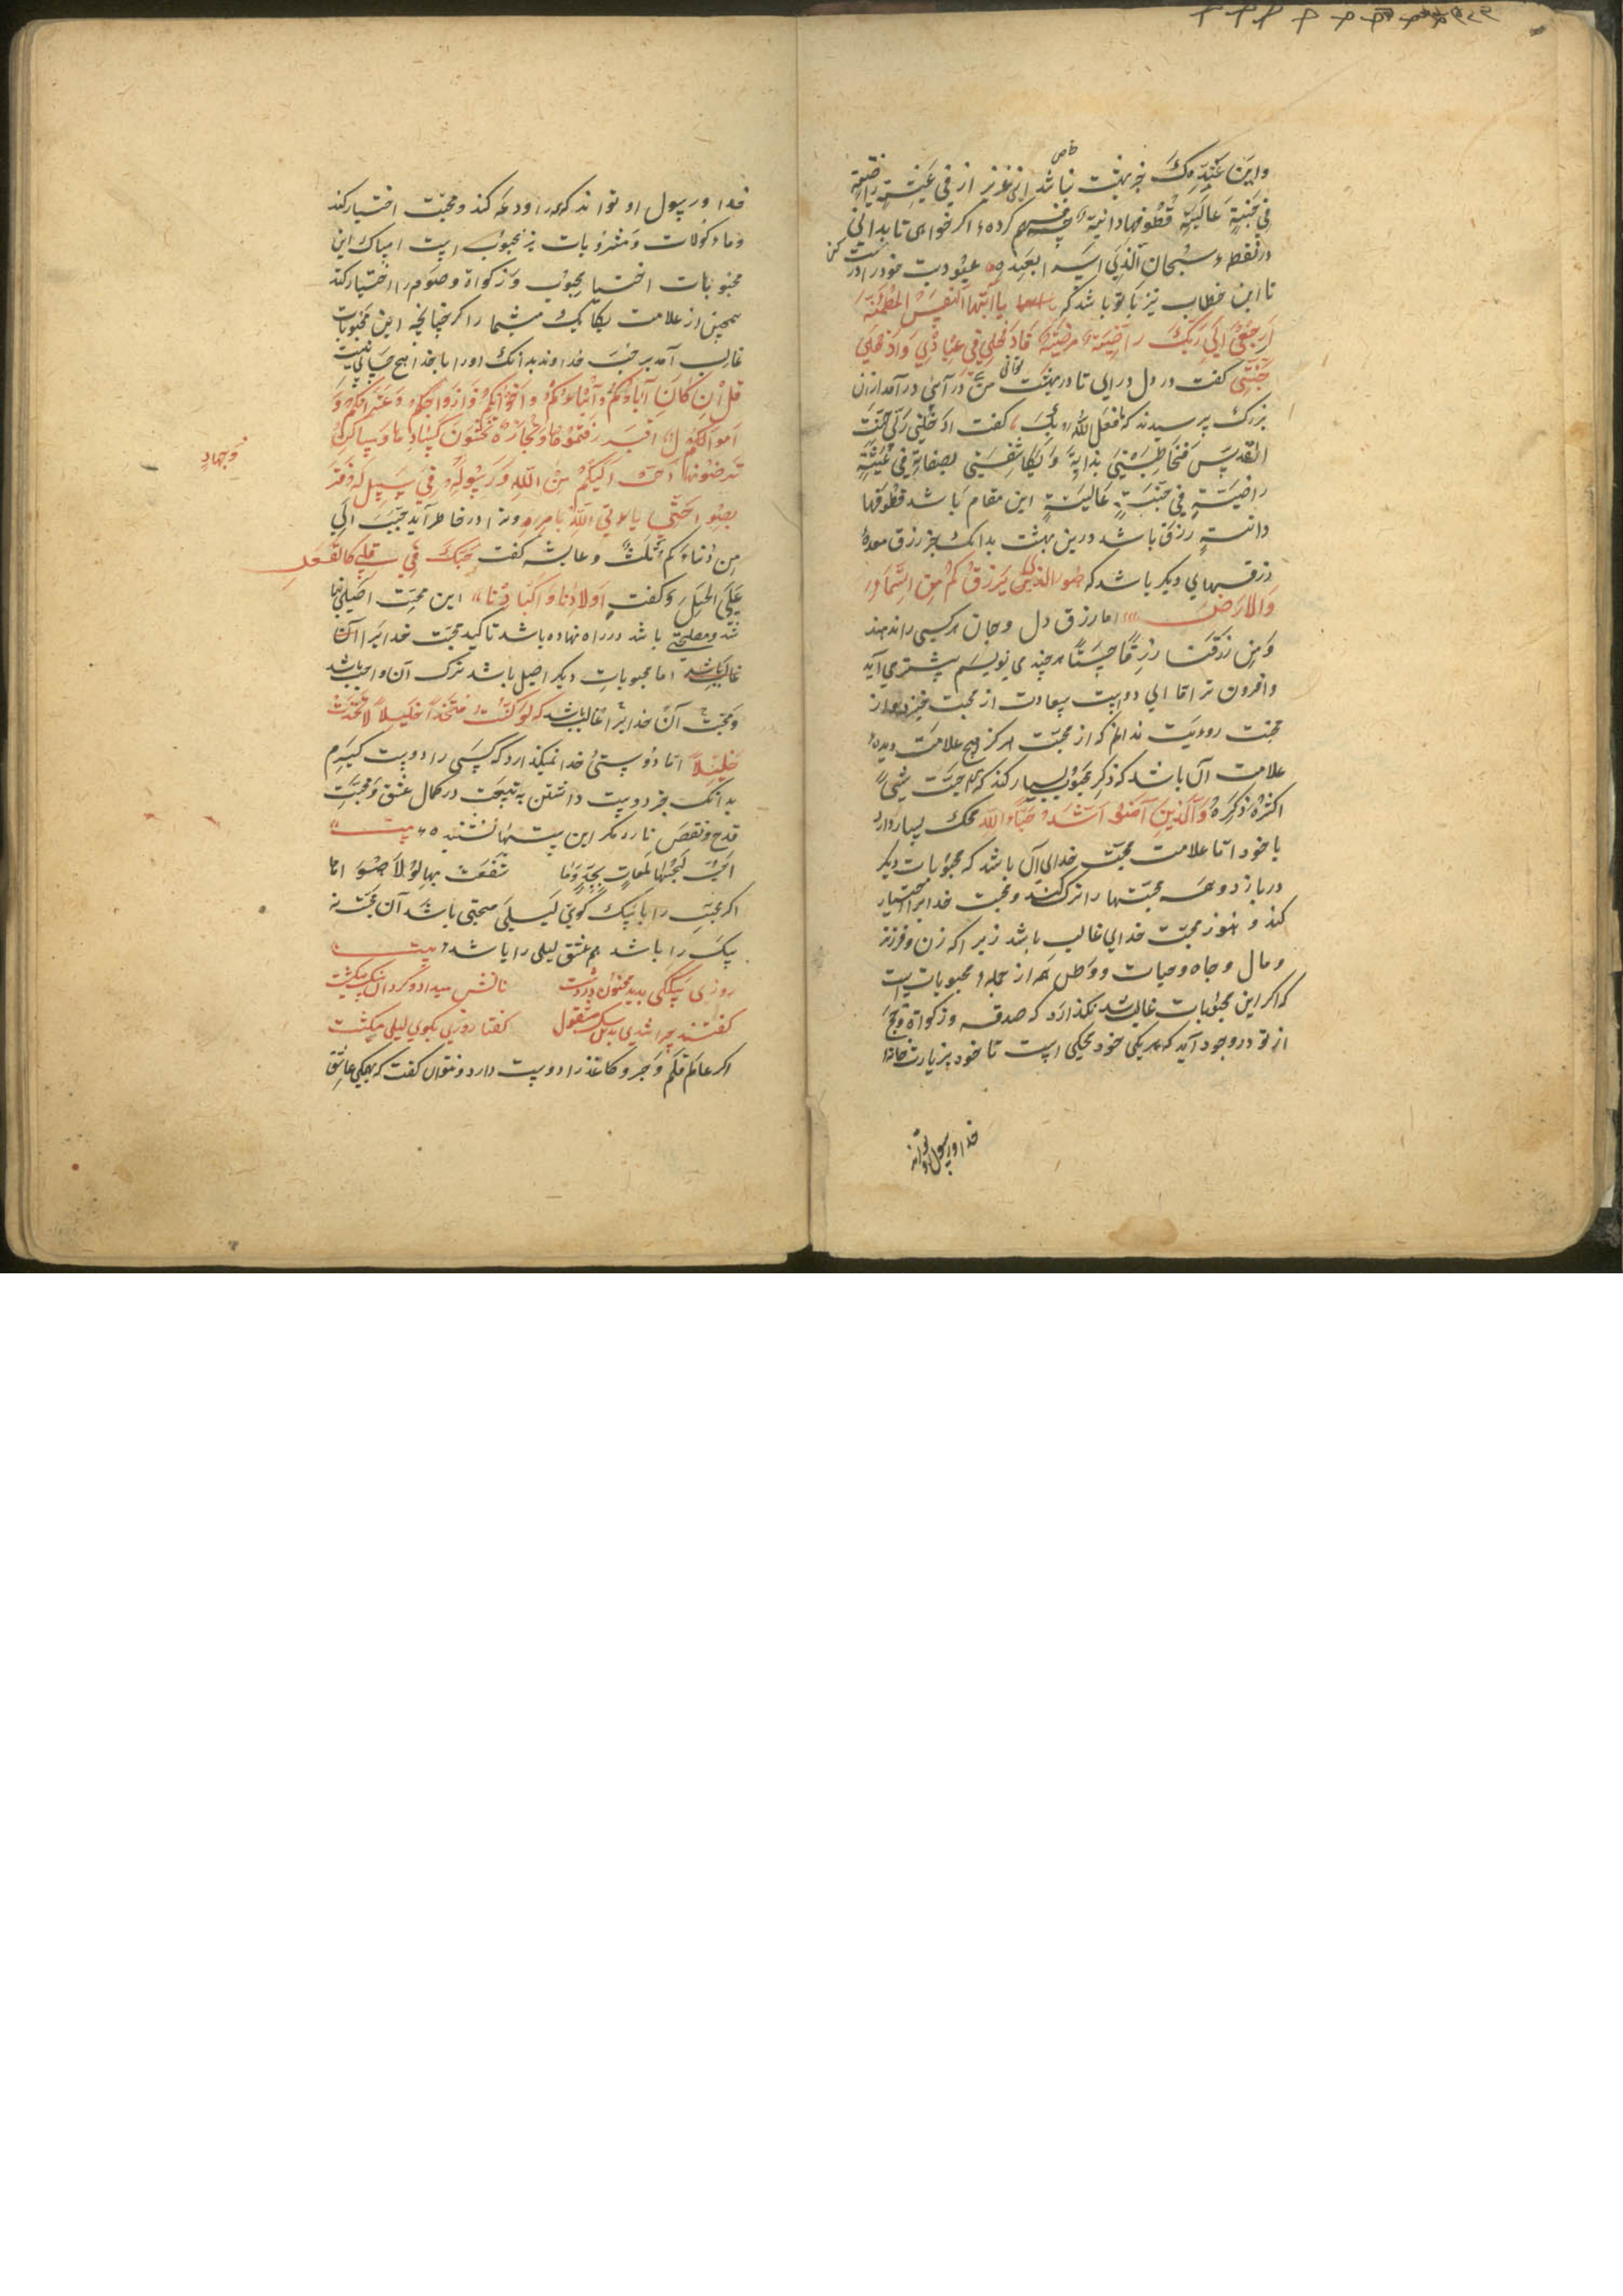 واین عندیت جز بهشت نباشد خاص ای عزیز از فی عیشة راضیة
فی جنة عالیة قطوفها دانیة چه فهم کردهٔ اگر خواهی تا بدانی
در نقطهٔ سبحان الذی اسری بعبده عبودیت خود را درست کن
تا این خطاب نیز با تو باشد که یا ایتها النفس المطمئنة
ارجعی الی ربک راضیة مرضیة فادخلی فی عبادی وادخلی
جنتی گفت در دل درآی تا در بهشت من توانی درآمی در آمد از آن
بزرگ پرسیدند که ما فعل الله بک گفت ادخلنی ربی جنة
القدس فخاطبنی بذاته ویکاشفنی بصفاته فی عیشة
راضیة فی جنة عالیة این مقام باشد قطوفها
دانیة رزق باشد درین بهشت بدانک بجز رزق معده
رزقهای دیگر باشد که هو الذی یرزقکم من السماء
والارض اما رزق دل و جان هر کسی را ندهند
ومن رزقناه رزقا حسنا هر چند می نویسم بیشتر می آید
وافزون تر اما ای دوست سعادت از محبت خیزد و از
محبت رویت ندانم که از محبت هرگز هیچ علامت دیدهٔ
علامت آن باشد که ذکر محبوب بسیار کند که من احب شیئا
اکثر ذکره والذین آمنوا اشد حبا لله محک بسیار دارد
با خود اما علامت محبت خدای آن باشد که محبوبات دیگر
دربازد و همه محبتها را ترک کند و محبت خدایرا اختیار
کند و هنوز محبت خدای غالب باشد زیرا که زن و فرزند
و مال و جاه و حیات و وطن همه از جملهٔ محبوبات است
که اگر این محبوبات غالب شد نگذارد که صدقه و زکواة و حج
از تو در وجود آید که هر یکی خود محکی است تا خود بزیارت خانهٔ
خدا و رسول او تواند
خدا و رسول او تواند که همه را وداع کند و محبت اختیار کند
و ماکولات و مشروبات نیز محبوب است امساک این
محبوبات اختیار محبوب و زکواة و صوم را اختیار کند
همچنین از علامت یکایک می شمار اگر چنانچه این محبوبات
غالب آمد بر حب خداوند بدانک او را با خدا هیچ حسابی نیست
قل ان کان آباؤکم وابناؤکم واخوانکم وازواجکم وعشیرتکم و
اموال اقترفتموها وتجارة تخشون کسادها ومساکن
ترضونها احب الیکم من الله ورسوله وجهاد فی سبیله فتر
بصوا حتی یاتی الله بامره و ترا در خاطر آید حبب الی
من دنیاکم ثلث و عایشه گفت حبک فی قلبی کالعقد
علی الحبل و گفت اولادنا اکبادنا این محبت اصلی نبا
شد و مصلحتی باشد در راه نهاده باشد تا کید محبت خدایرا
غالب باشد اما محبوبات دیگر اصل باشد ترک آن واجب باشد
و محبت آن خدایرا غالب باشد که لو کنت متخذا خلیلا لاتخذت
خلیلا اما دوستیٔ خدا نمیگذارد که کسی را دوست گیرم
بدانک جز دوست داشتن به تبعیت در کمال عشق و محبت
قدح و نقص نارد مگر این بیتها نشنیدهٔ بیت
احب لحبها تلعات نجد وما شغفت بها لولا هواها
اگر محب را با سگ کوی لیلی محبتی باشد آن محبت نه
سگ را باشد هم عشق لیلی را باشد بیت
روزی سگکی بدید مجنون در دشت نانش میداد و گرد آن سگ میگشت
گفتند چرا شدی بدین سگ مشغول گفتا روزی بکوی لیلی میگشت
اگر عالم قلم و حبر و کاغذ را دوست دارد نتوان گفت که بهمگی عاشق